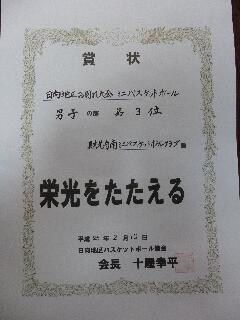 賞状
日向地区お別れ大会ミニバスケットボール
男子の部 第3位
財光寺南ミニバスケットボールクラブ殿
栄光をたたえる
平成25年2月
日向地区バスケットボール協会
会長 十屋幸平